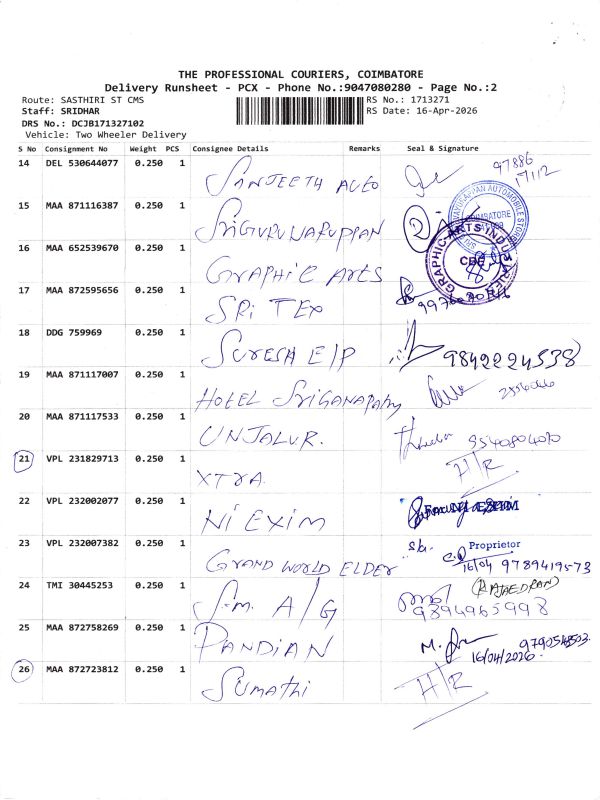 THE PROFESSIONAL COURIERS, COIMBATORE
Delivery Runsheet - PCX - Phone No.:9047080280 - Page No.:2
Route: SASTHIRI ST CMS RS No.: 1713271
Staff: SRIDHAR RS Date: 16-Apr-2026
DRS No.: DCJB171327102
Vehicle: Two Wheeler Delivery
S No Consignment No Weight PCS Consignee Details Remarks Seal & Signature
14 DEL 530644077 0.250 1 SANJEETH AUTO 97886 17112
15 MAA 871116387 0.250 1 SRIGURUNARUPPAN
16 MAA 652539670 0.250 1 GRAPHIC ARTS
17 MAA 872595656 0.250 1 SRI TEX
18 DDG 759969 0.250 1 SURESH E/P 9842224538
19 MAA 871117007 0.250 1 HOTEL SRIGANAPATHY
20 MAA 871117533 0.250 1 UNJALUR.
21 VPL 231829713 0.250 1 XTRA. H/R
22 VPL 232002077 0.250 1 NI EXIM
23 VPL 232007382 0.250 1 GRAND WORLD ELDER Proprietor 16/04 9789419573
24 TMI 30445253 0.250 1 S.M. A/G (RAJAEDRAN) 9894965998
25 MAA 872758269 0.250 1 PANDIAN 16/04/2026
26 MAA 872723812 0.250 1 SUMATHI H/R